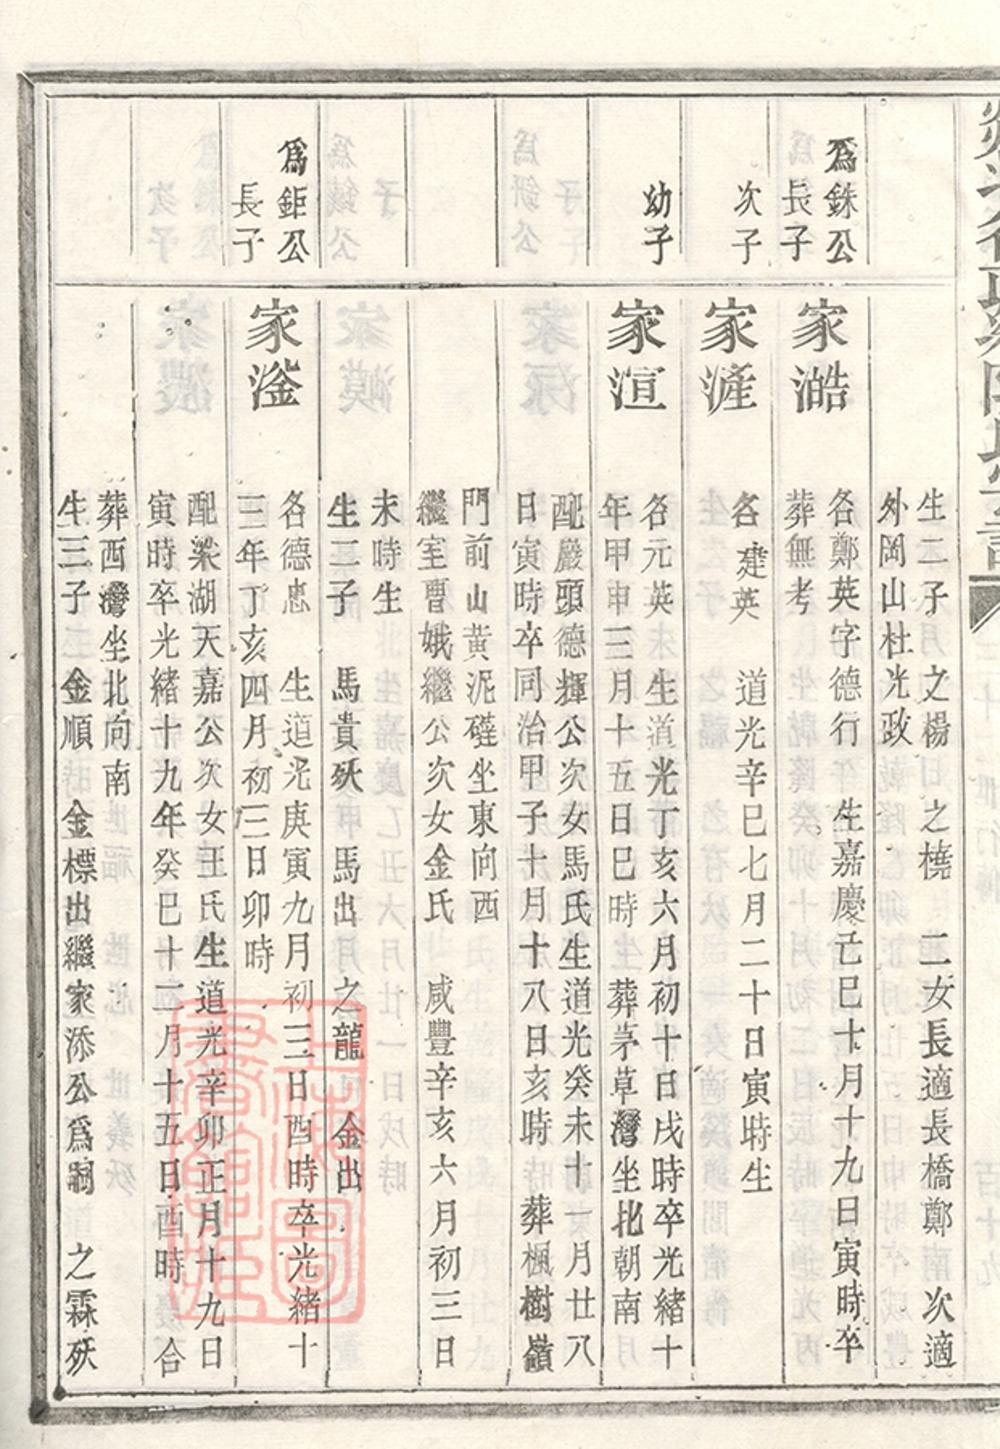 生二子 之楊 之橈 二女長適長橋鄭南 次適
外岡山杜光政
爲銖公
長子
家澔
名鄭英字德行 生嘉慶己巳十月十九日寅時卒
葬無考
次子
家㵮
名建英 道光辛巳七月二十日寅時生
幼子
家洹
名元英朱 生道光丁亥六月初十日戌時卒光緒十
年甲申三月十五日巳時 葬茅草灣坐北朝南
配嚴頭德輝公次女馬氏生道光癸未十一月廿八
日寅時卒同治甲子十月十八日亥時 葬楓樹嶺
門前山黃泥礳坐東向西
繼室曹娥繼公次女金氏 咸豐辛亥六月初三日
未時生
生三子 馬貴殀 馬出 之龍 金出
爲鉅公
長子
家淦
名德忠 生道光庚寅九月初三日酉時卒光緒十
三年丁亥四月初三日卯時
配梁湖天嘉公次女王氏生道光辛卯正月十九日
寅時卒光緒十九年癸巳十二月十五日酉時 合
葬西灣坐北向南
生三子 金順 金標出繼家添公爲嗣 之霖殀
上海圖
書館藏